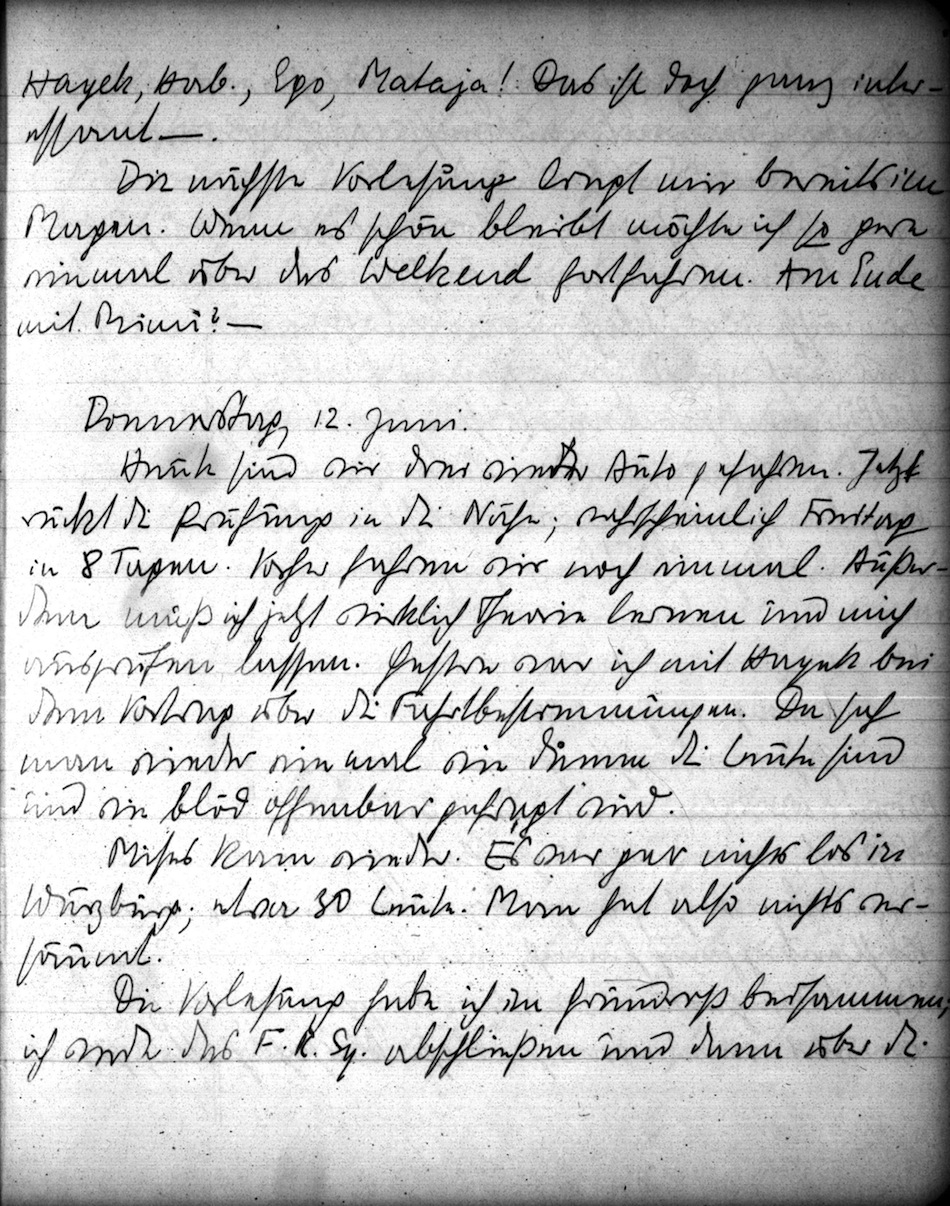 Hayek, Hab., Ego, Mataja! Das ist doch ganz inter-
essant —.
Die nächste Vorlesung liegt mir bereits im
Magen. Wenn es schön bleibt möchte ich so gern
einmal über das Weekend fortfahren. Am Ende
mit Mimi? —
Donnerstag, 12. Juni.
Heute sind wir drei wieder Auto gefahren. Jetzt
rückt die Prüfung in die Nähe; wahrscheinlich Freitag
in 8 Tagen. Vorher fahren wir noch einmal. Außer-
dem muß ich jetzt wirklich Theorie lernen und mich
ausprüfen lassen. Gestern war ich mit Hayek bei
dem Vortrag über die Fahrtbestimmungen. Da sah
man wieder einmal wie dumm die Leute sind
und wie blöd offenbar gefragt wird.
Mises kam wieder. Es war gar nichts los in
Würzburg; etwa 30 Leute. Man hat also nichts ver-
säumt.
Die Vorlesung habe ich im Grundriß beisammen,
ich werde das F. R. Sy. abschließen und dann über die